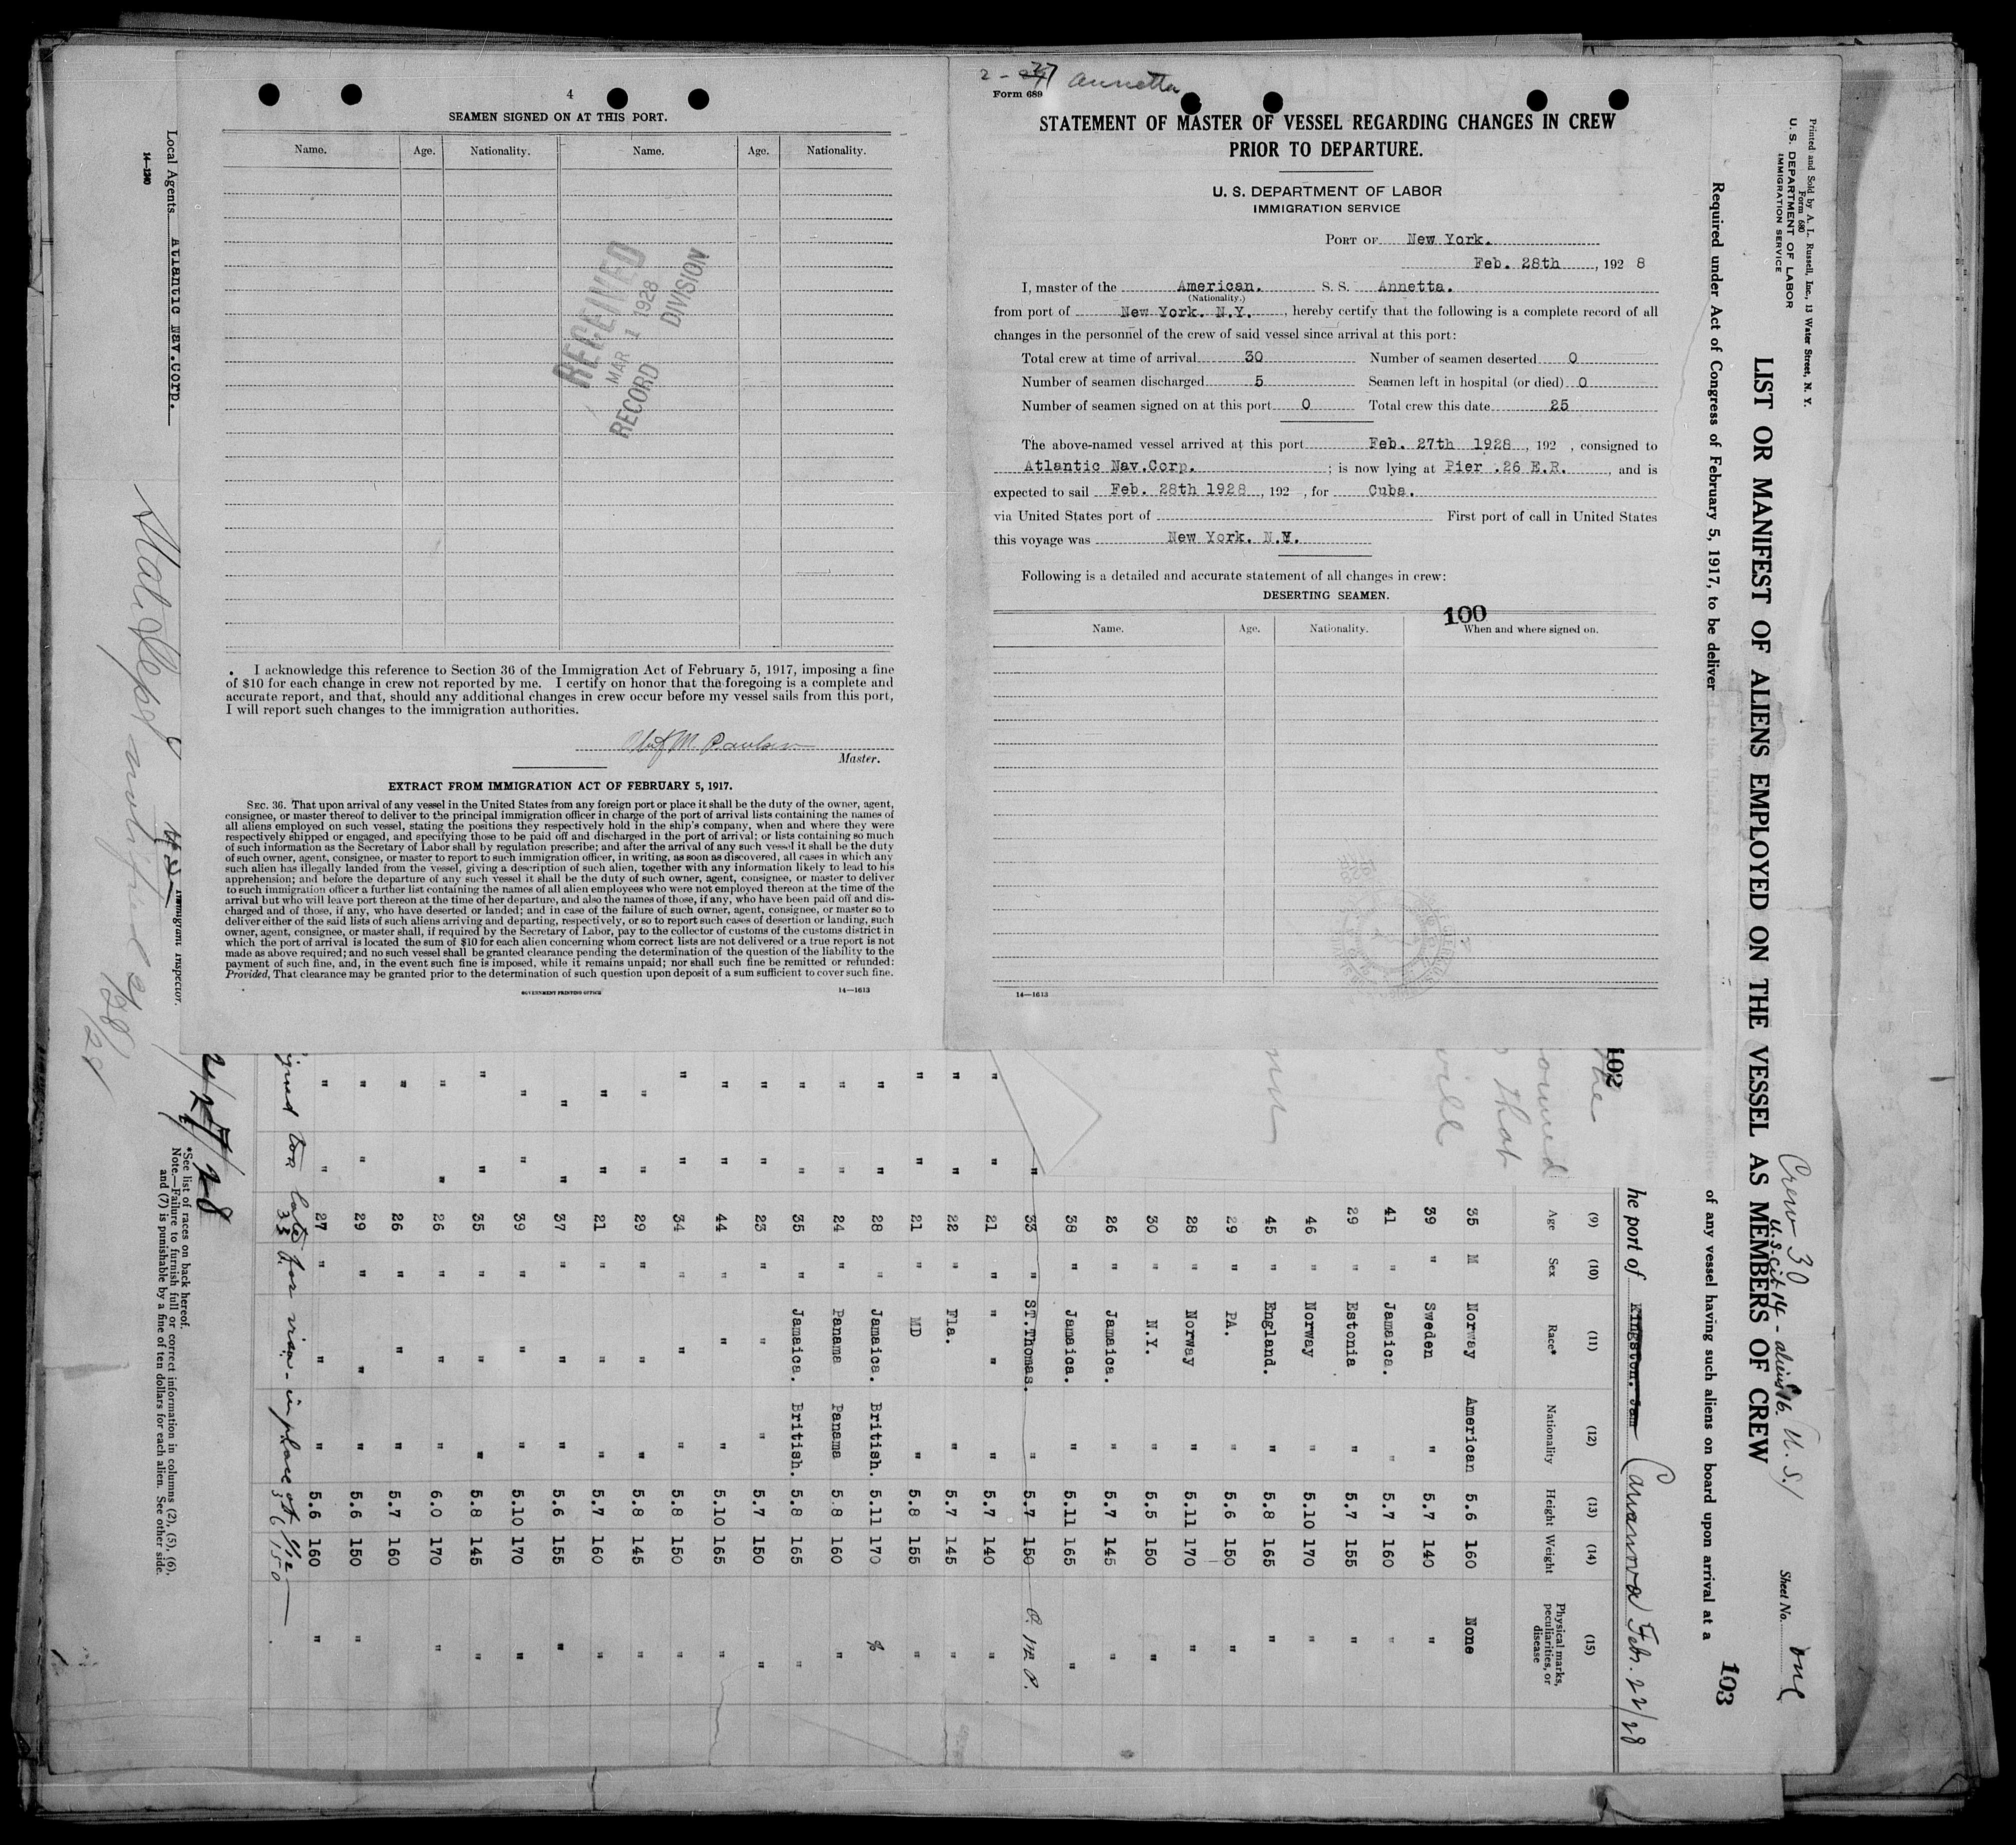 4
SEAMEN SIGNED ON AT THIS PORT.
Name. Age. Nationality. Name. Age. Nationality.
RECEIVED
MAR 1 1928
RECORD DIVISION
. I acknowledge this reference to Section 36 of the Immigration Act of February 5, 1917, imposing a fine
of $10 for each change in crew not reported by me. I certify on honor that the foregoing is a complete and
accurate report, and that, should any additional changes in crew occur before my vessel sails from this port,
I will report such changes to the immigration authorities.
Master.
EXTRACT FROM IMMIGRATION ACT OF FEBRUARY 5, 1917.
SEC. 36. That upon arrival of any vessel in the United States from any foreign port or place it shall be the duty of the owner, agent,
consignee, or master thereof to deliver to the principal immigration officer in charge of the port of arrival lists containing the names of
all aliens employed on such vessel, stating the positions they respectively hold in the ship's company, when and where they were
respectively shipped or engaged, and specifying those to be paid off and discharged in the port of arrival; or lists containing so much
of such information as the Secretary of Labor shall by regulation prescribe; and after the arrival of any such vessel it shall be the duty
of such owner, agent, consignee, or master to report to such immigration officer, in writing, as soon as discovered, all cases in which any
such alien has illegally landed from the vessel, giving a description of such alien, together with any information likely to lead to his
apprehension; and before the departure of any such vessel it shall be the duty of such owner, agent, consignee, or master to deliver
to such immigration officer a further list containing the names of all alien employees who were not employed thereon at the time of the
arrival but who will leave port thereon at the time of her departure, and also the names of those, if any, who have been paid off and dis-
charged and of those, if any, who have deserted or landed; and in case of the failure of such owner, agent, consignee, or master so to
deliver either of the said lists of such aliens arriving and departing, respectively, or so to report such cases of desertion or landing, such
owner, agent, consignee, or master shall, if required by the Secretary of Labor, pay to the collector of customs of the customs district in
which the port of arrival is located the sum of $10 for each alien concerning whom correct lists are not delivered or a true report is not
made as above required; and no such vessel shall be granted clearance pending the determination of the question of the liability to the
payment of such fine, and, in the event such fine is imposed, while it remains unpaid; nor shall such fine be remitted or refunded:
Provided, That clearance may be granted prior to the determination of such question upon deposit of a sum sufficient to cover such fine.
GOVERNMENT PRINTING OFFICE 14—1613
2 - 27 Annetta
Form 689
STATEMENT OF MASTER OF VESSEL REGARDING CHANGES IN CREW
PRIOR TO DEPARTURE.
U. S. DEPARTMENT OF LABOR
IMMIGRATION SERVICE
PORT OF New York.
Feb. 28th, 192 8
I, master of the American. S. S. Annetta.
(Nationality.)
from port of New York. N.Y., hereby certify that the following is a complete record of all
changes in the personnel of the crew of said vessel since arrival at this port:
Total crew at time of arrival 30 Number of seamen deserted 0
Number of seamen discharged 5 Seamen left in hospital (or died) 0
Number of seamen signed on at this port 0 Total crew this date 25
The above-named vessel arrived at this port Feb. 27th 1928, 192 , consigned to
Atlantic Nav.Corp. ; is now lying at Pier .26 E.R., and is
expected to sail Feb. 28th 1928, 192 , for Cuba.
via United States port of First port of call in United States
this voyage was New York. N.Y.
Following is a detailed and accurate statement of all changes in crew:
DESERTING SEAMEN.
100
Name. Age. Nationality. When and where signed on.
14—1613
Printed and Sold by A. L. Russell, Inc., 13 Water Street, N. Y.
Form 680
U. S. DEPARTMENT OF LABOR
IMMIGRATION SERVICE
Crew 30
U.S. cit 14 - aliens 16. (U.S.)
Sheet No. one
LIST OR MANIFEST OF ALIENS EMPLOYED ON THE VESSEL AS MEMBERS OF CREW
Required under Act of Congress of February 5, 1917, to be deliver
of any vessel having such aliens on board upon arrival at a
103
102
he port of Kingston. Jam Feb. 22/28
the
that
(9) (10) (11) (12) (13) (14) (15)
Age Sex Race* Nationality Height Weight Physical marks, peculiarities, or disease
35 M Norway American 5.6 160 None
39 " Sweden " 5.7 140 "
41 " Jamaica. " 5.7 160 "
29 " Estonia " 5.7 155 "
46 " Norway " 5.10 170 "
45 " England. " 5.8 165 "
29 " PA. " 5.6 150 "
28 " Norway " 5.11 170 "
30 " N.Y. " 5.5 150 "
26 " Jamaica. " 5.7 145 "
38 " Jamaica. " 5.11 165 "
" 33 " ST.Thomas. " 5.7 150
" " 21 " " " 5.7 140 "
" " 22 " Fla. " 5.7 145 "
" " 21 " MD " 5.8 155 "
" " 28 " Jamaica. British. 5.11 170 %
" " 24 " Panama Panama 5.8 160 "
" " 35 " Jamaica. British. 5.8 165 "
" " 23 " " " 5.7 150 "
" " 44 " " " 5.10 165 "
" " 34 " " " 5.8 150 "
" " 29 " " " 5.8 145 "
" " 21 " " " 5.7 160 "
" " 37 " " " 5.6 155 "
" " 39 " " " 5.10 170 "
" " 35 " " " 5.8 145 "
" " 26 " " " 6.0 170 "
" 26 " " " 5.7 160
" " 29 " " " 5.6 150 "
" " 27 " " " 5.6 160 "
too late for visa - in place of
2/27/28
*See list of races on back hereof.
Note.—Failure to furnish full or correct information in columns (2), (5), (6),
and (7) is punishable by a fine of ten dollars for each alien. See other side.
Immigrant Inspector.
Local Agents Atlantic Nav.Corp.
14—1240
2/28/28